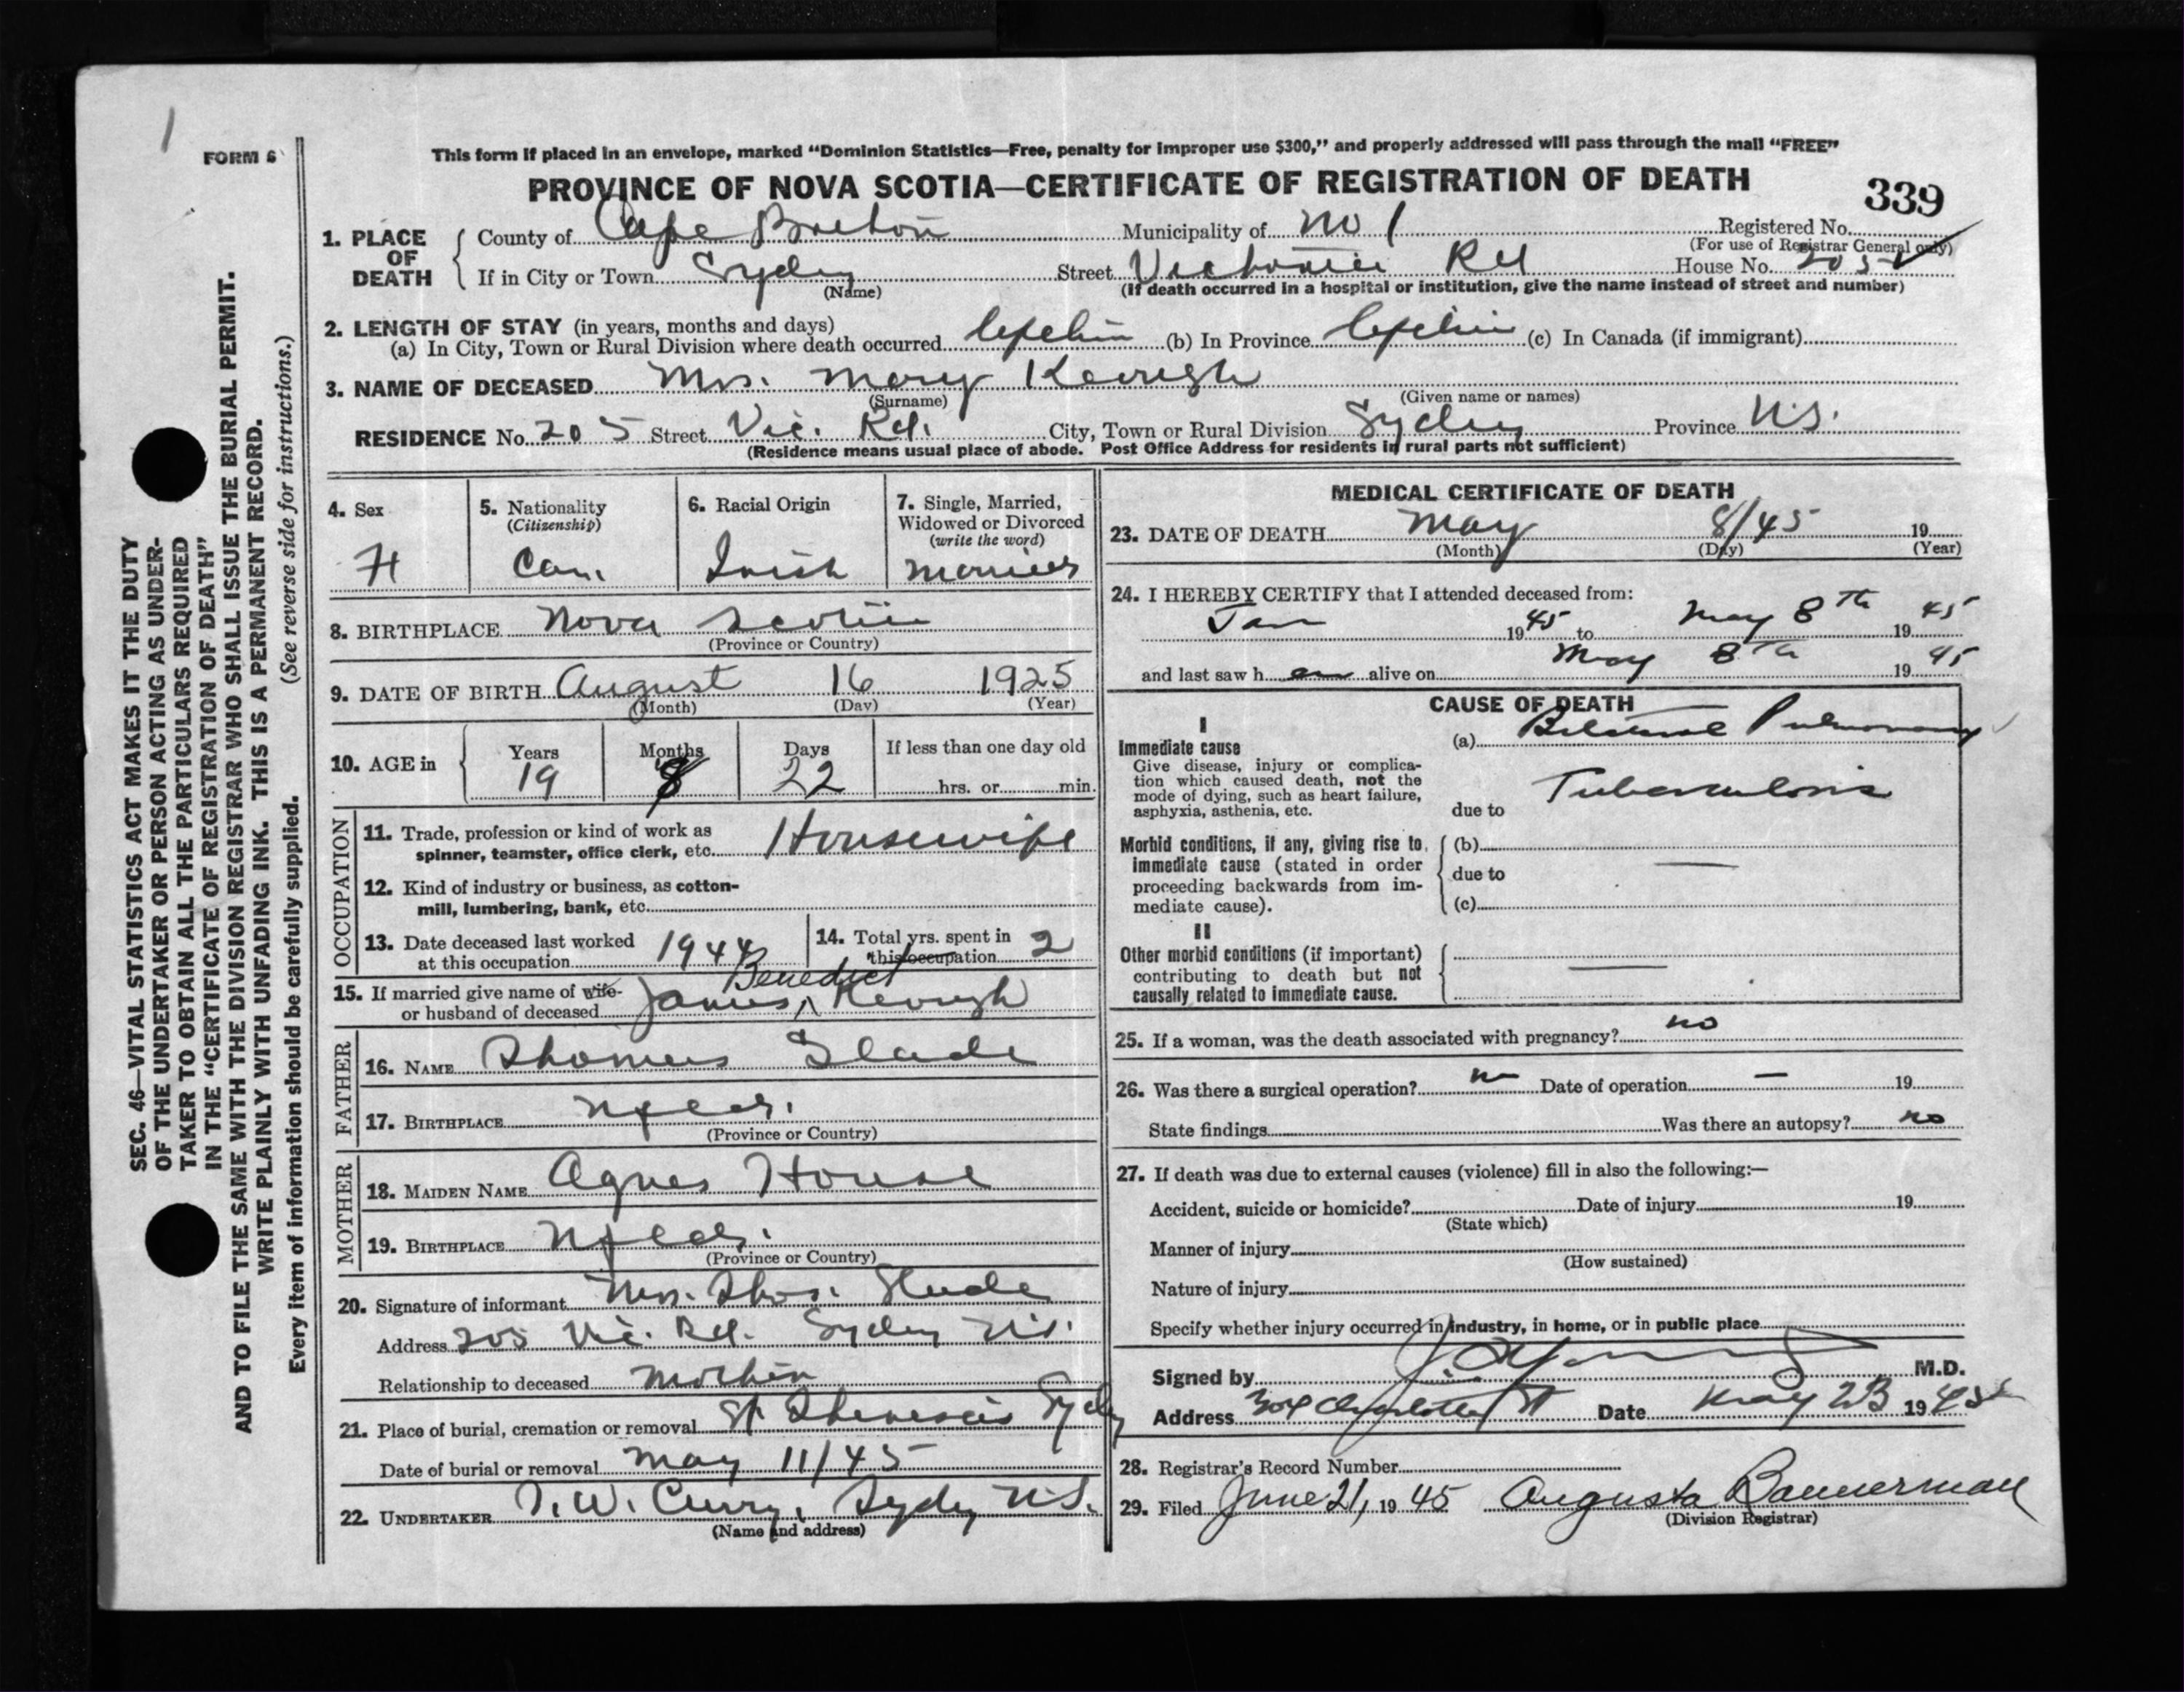 FORM 6
This form if placed in an envelope, marked “Dominion Statistics—Free, penalty for improper use $300,” and properly addressed will pass through the mail “FREE”
PROVINCE OF NOVA SCOTIA—CERTIFICATE OF REGISTRATION OF DEATH
339
1. PLACE OF DEATH
County of Cape Breton Municipality of no 1 Registered No.
(For use of Registrar General only)
If in City or Town Sydney Street Victoria Rd House No. 205
(Name) (If death occurred in a hospital or institution, give the name instead of street and number)
2. LENGTH OF STAY (in years, months and days)
(a) In City, Town or Rural Division where death occurred (b) In Province (c) In Canada (if immigrant)
3. NAME OF DECEASED Mrs. Mary Keough
(Surname) (Given name or names)
RESIDENCE No. 205 Street Vic. Rd. City, Town or Rural Division Sydney Province N.S.
(Residence means usual place of abode. Post Office Address for residents in rural parts not sufficient)
4. Sex F
5. Nationality (Citizenship) Can.
6. Racial Origin Irish
7. Single, Married, Widowed or Divorced (write the word) Married
8. BIRTHPLACE Nova Scotia
(Province or Country)
9. DATE OF BIRTH August 16 1925
(Month) (Day) (Year)
10. AGE in Years 19 Months 8 Days 22 If less than one day old
hrs. or min.
OCCUPATION
11. Trade, profession or kind of work as spinner, teamster, office clerk, etc. Housewife
12. Kind of industry or business, as cotton-mill, lumbering, bank, etc.
13. Date deceased last worked at this occupation 1944
14. Total yrs. spent in this occupation 2
15. If married give name of wife or husband of deceased James Benedict Keough
FATHER
16. NAME Thomas Slade
17. BIRTHPLACE Nfld.
(Province or Country)
MOTHER
18. MAIDEN NAME Agnes House
19. BIRTHPLACE Nfld.
(Province or Country)
20. Signature of informant Mrs. Thos. Slade
Address 205 Vic. Rd. Sydney N.S.
Relationship to deceased Mother
21. Place of burial, cremation or removal Sydney
Date of burial or removal May 11/45
22. UNDERTAKER T. W. Curry, Sydney N.S.
(Name and address)
MEDICAL CERTIFICATE OF DEATH
23. DATE OF DEATH May 8/45 19
(Month) (Day) (Year)
24. I HEREBY CERTIFY that I attended deceased from:
Jan 1945 to May 8th 1945
and last saw her alive on May 8th 1945
CAUSE OF DEATH
I
Immediate cause
Give disease, injury or complication which caused death, not the mode of dying, such as heart failure, asphyxia, asthenia, etc.
(a) Bilateral Pulmonary
Tuberculosis
due to
Morbid conditions, if any, giving rise to immediate cause (stated in order proceeding backwards from immediate cause).
(b)
due to —
(c)
II
Other morbid conditions (if important) contributing to death but not causally related to immediate cause. —
25. If a woman, was the death associated with pregnancy? no
26. Was there a surgical operation? no Date of operation — 19
State findings Was there an autopsy? no
27. If death was due to external causes (violence) fill in also the following:—
Accident, suicide or homicide? Date of injury 19
(State which)
Manner of injury
(How sustained)
Nature of injury
Specify whether injury occurred in industry, in home, or in public place
Signed by M.D.
Address Charlotte St Date May 23 1945
28. Registrar's Record Number
29. Filed June 21, 1945 Augusta Bannerman
(Division Registrar)
SEC. 46—VITAL STATISTICS ACT MAKES IT THE DUTY
OF THE UNDERTAKER OR PERSON ACTING AS UNDER-
TAKER TO OBTAIN ALL THE PARTICULARS REQUIRED
IN THE “CERTIFICATE OF REGISTRATION OF DEATH”
AND TO FILE THE SAME WITH THE DIVISION REGISTRAR WHO SHALL ISSUE THE BURIAL PERMIT.
WRITE PLAINLY WITH UNFADING INK. THIS IS A PERMANENT RECORD.
Every item of information should be carefully supplied. (See reverse side for instructions.)